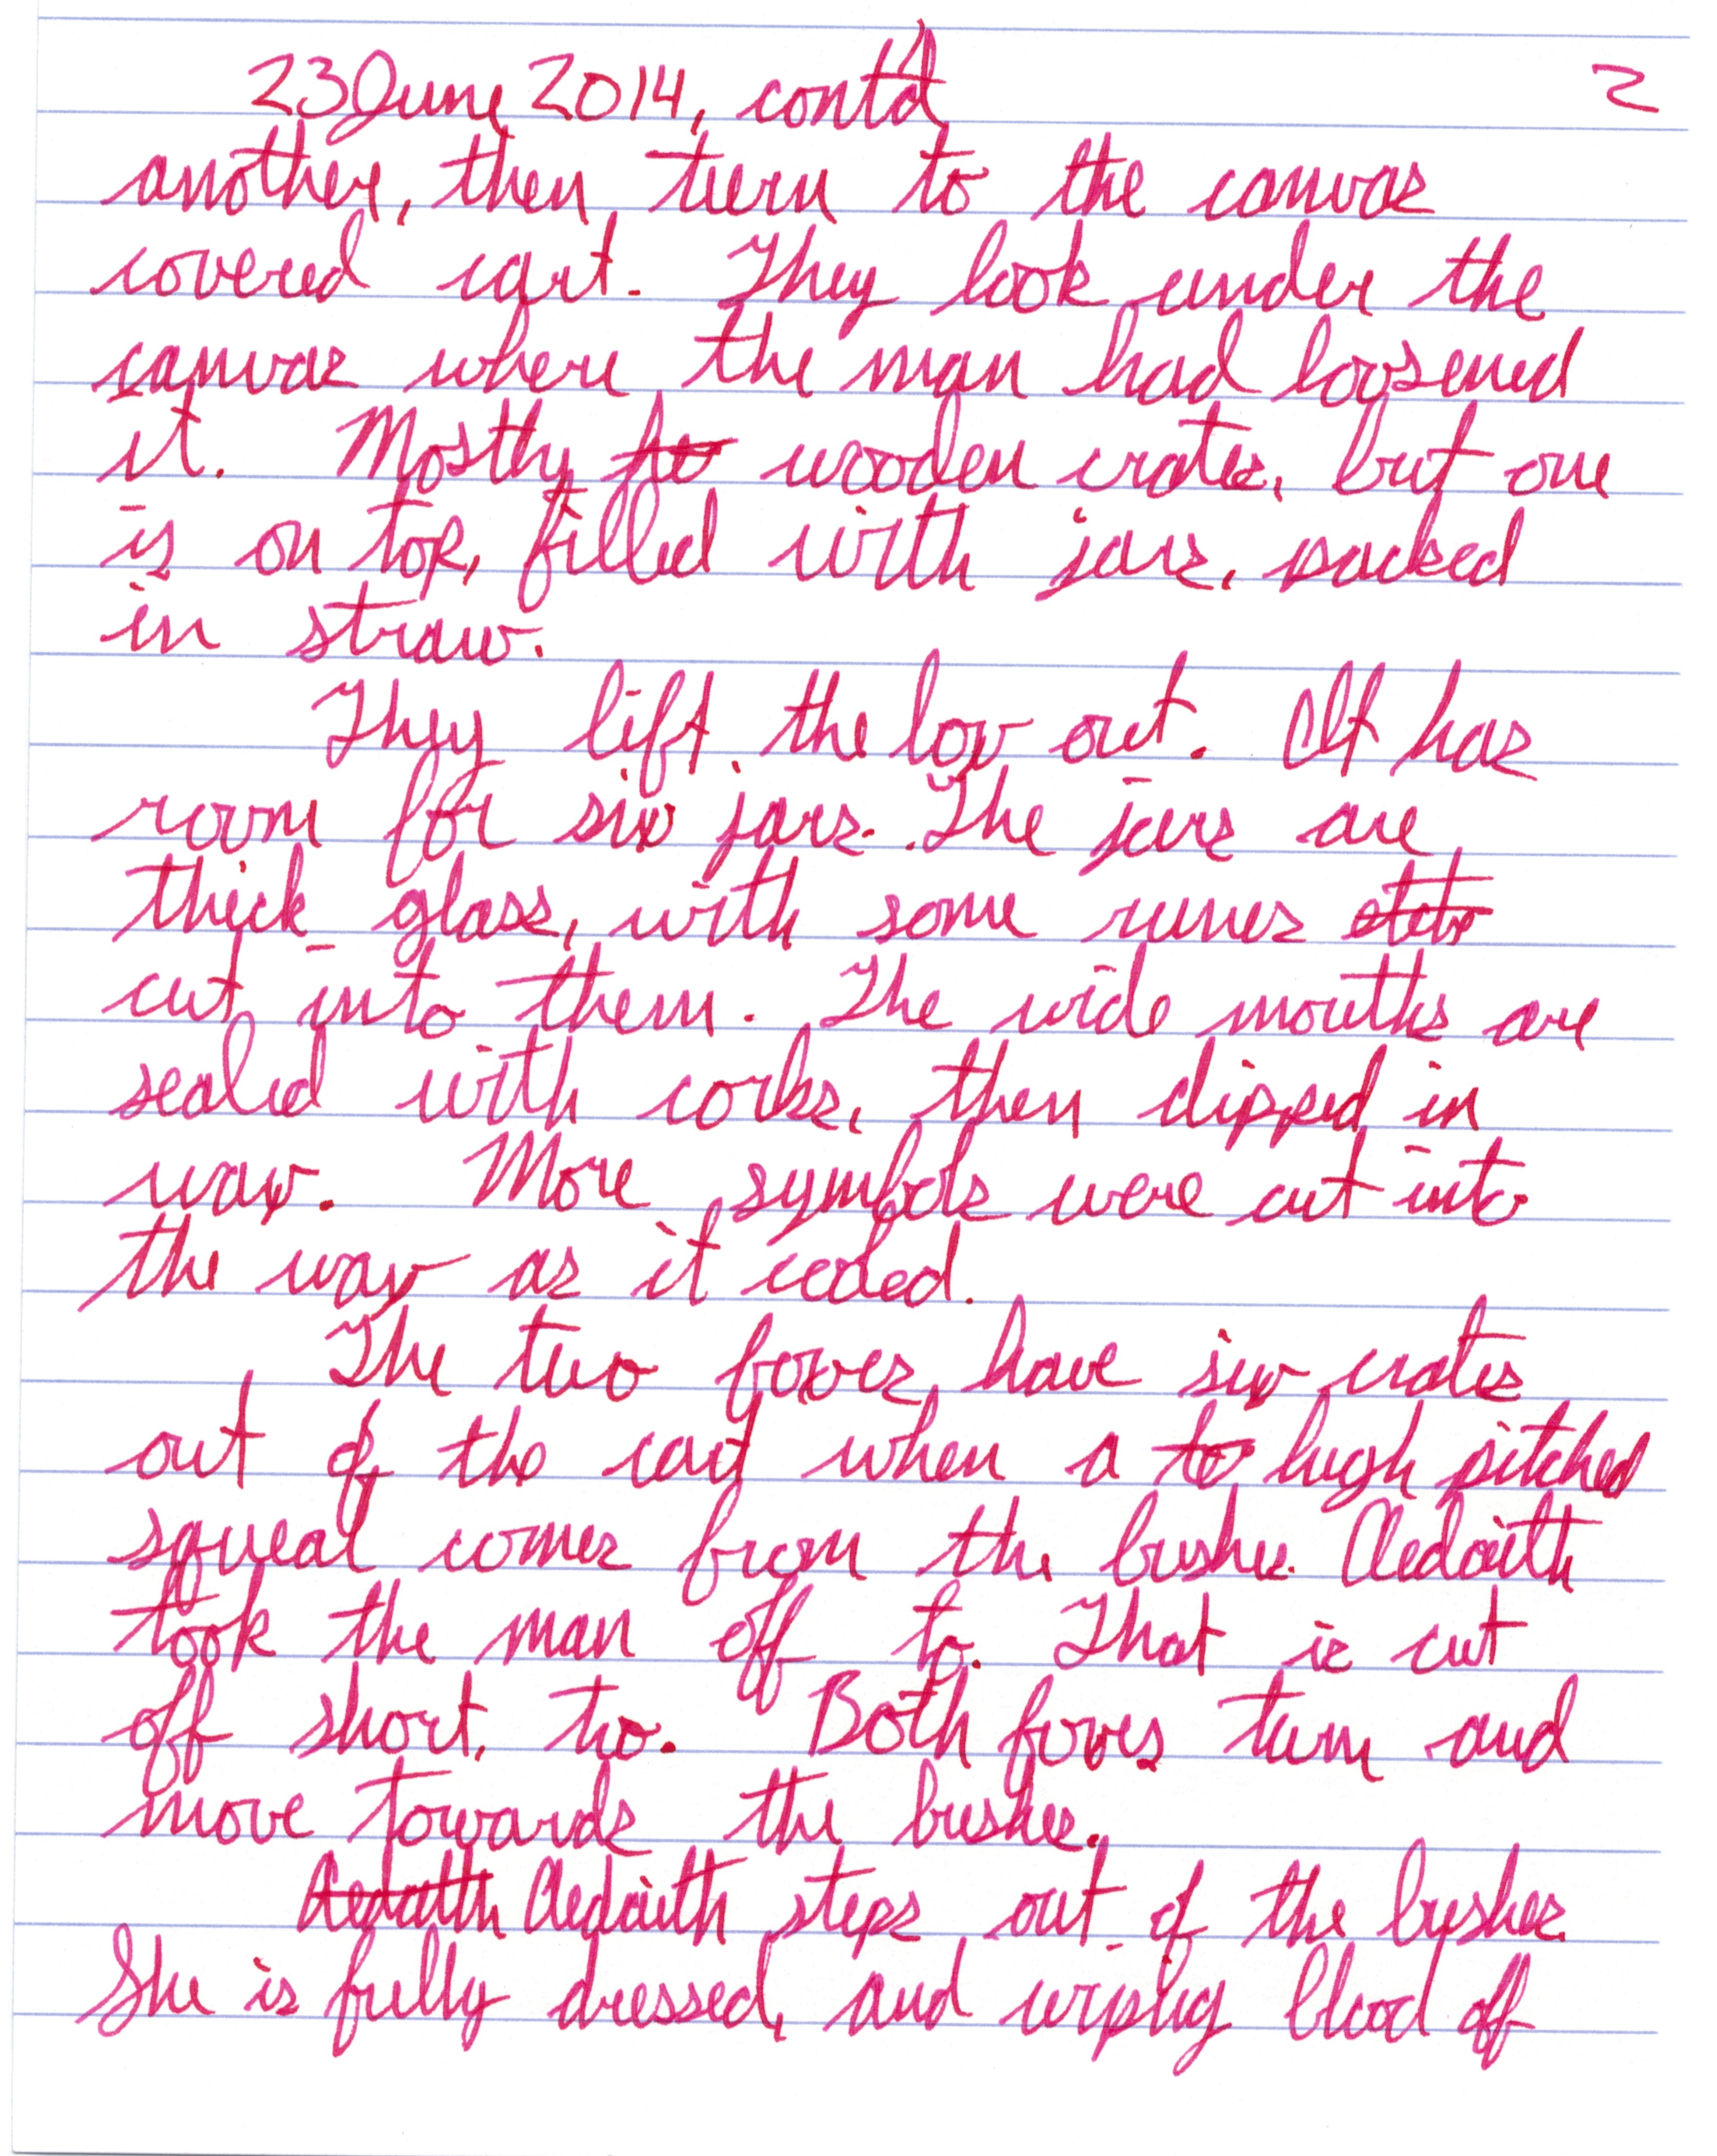 23 June 2014, cont'd 2
another, then turn to the canvas
covered cart. They look under the
canvas where the man had loosened
it. Mostly wooden crates, but one
is on top, filled with jars, packed
in straw.
They lift the box out. It has
room for six jars. The jars are
thick glass, with some runes
cut into them. The wide mouths are
sealed with corks, then dipped in
wax. More symbols were cut into
the wax as it cooled.
The two foxes have six crates
out of the cart when a high pitched
squeal comes from the bushes Aedaith
took the man off to. That is cut
off short, too. Both foxes turn and
move towards the bushes.
Aedaith Aedaith steps out of the bushes.
She is fully dressed, and wiping blood off